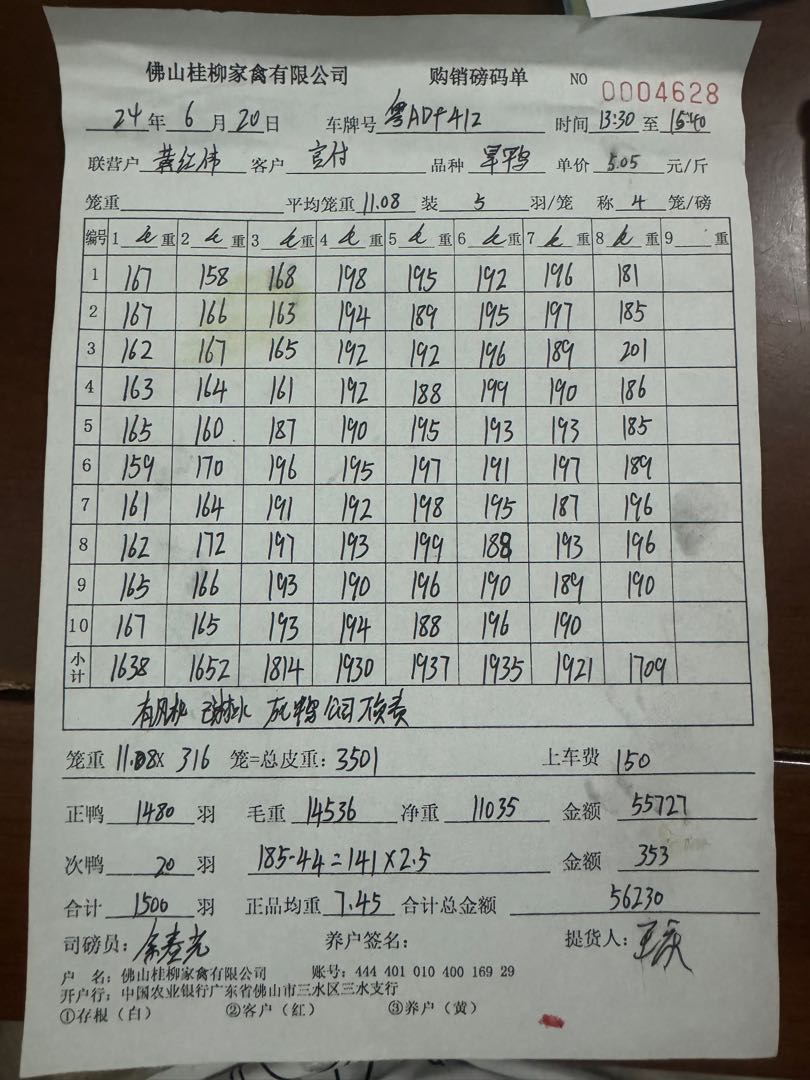 佛山桂柳家禽有限公司 购销磅码单 NO 0004628
24年 6月 20日 车牌号 粤ADF412 时间 13:30 至 15:40
联营户 黄红伟 客户 官付 品种 旱鸭 单价 5.05 元/斤
笼重 平均笼重 11.08 装 5 羽/笼 称 4 笼/磅
编号 1 毛 重 2 毛 重 3 毛 重 4 毛 重 5 毛 重 6 毛 重 7 毛 重 8 毛 重 9 重
1 167 158 168 198 195 192 196 181
2 167 166 163 194 189 195 197 185
3 162 167 165 192 192 196 189 201
4 163 164 161 192 188 199 190 186
5 165 160 187 190 195 193 193 185
6 159 170 196 195 197 191 197 189
7 161 164 191 192 198 195 187 196
8 162 172 197 193 199 188 193 196
9 165 166 193 190 196 190 189 190
10 167 165 193 194 188 196 190
小计 1638 1652 1814 1930 1937 1935 1921 1709
有风机 死鸭公司不负责
笼重 11.08 x 316 笼=总皮重: 3501 上车费 150
正鸭 1480 羽 毛重 14536 净重 11035 金额 55727
次鸭 20 羽 185-44=141×2.5 金额 353
合计 1500 羽 正品均重 7.45 合计总金额 56230
司磅员: 养户签名: 提货人:
户 名: 佛山桂柳家禽有限公司 账号: 444 401 010 400 169 29
开户行: 中国农业银行广东省佛山市三水区三水支行
①存根(白) ②客户(红) ③养户(黄)